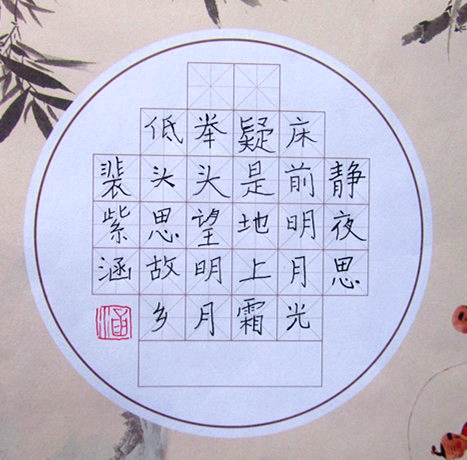 静夜思
床前明月光
疑是地上霜
举头望明月
低头思故乡
裴紫涵
涵